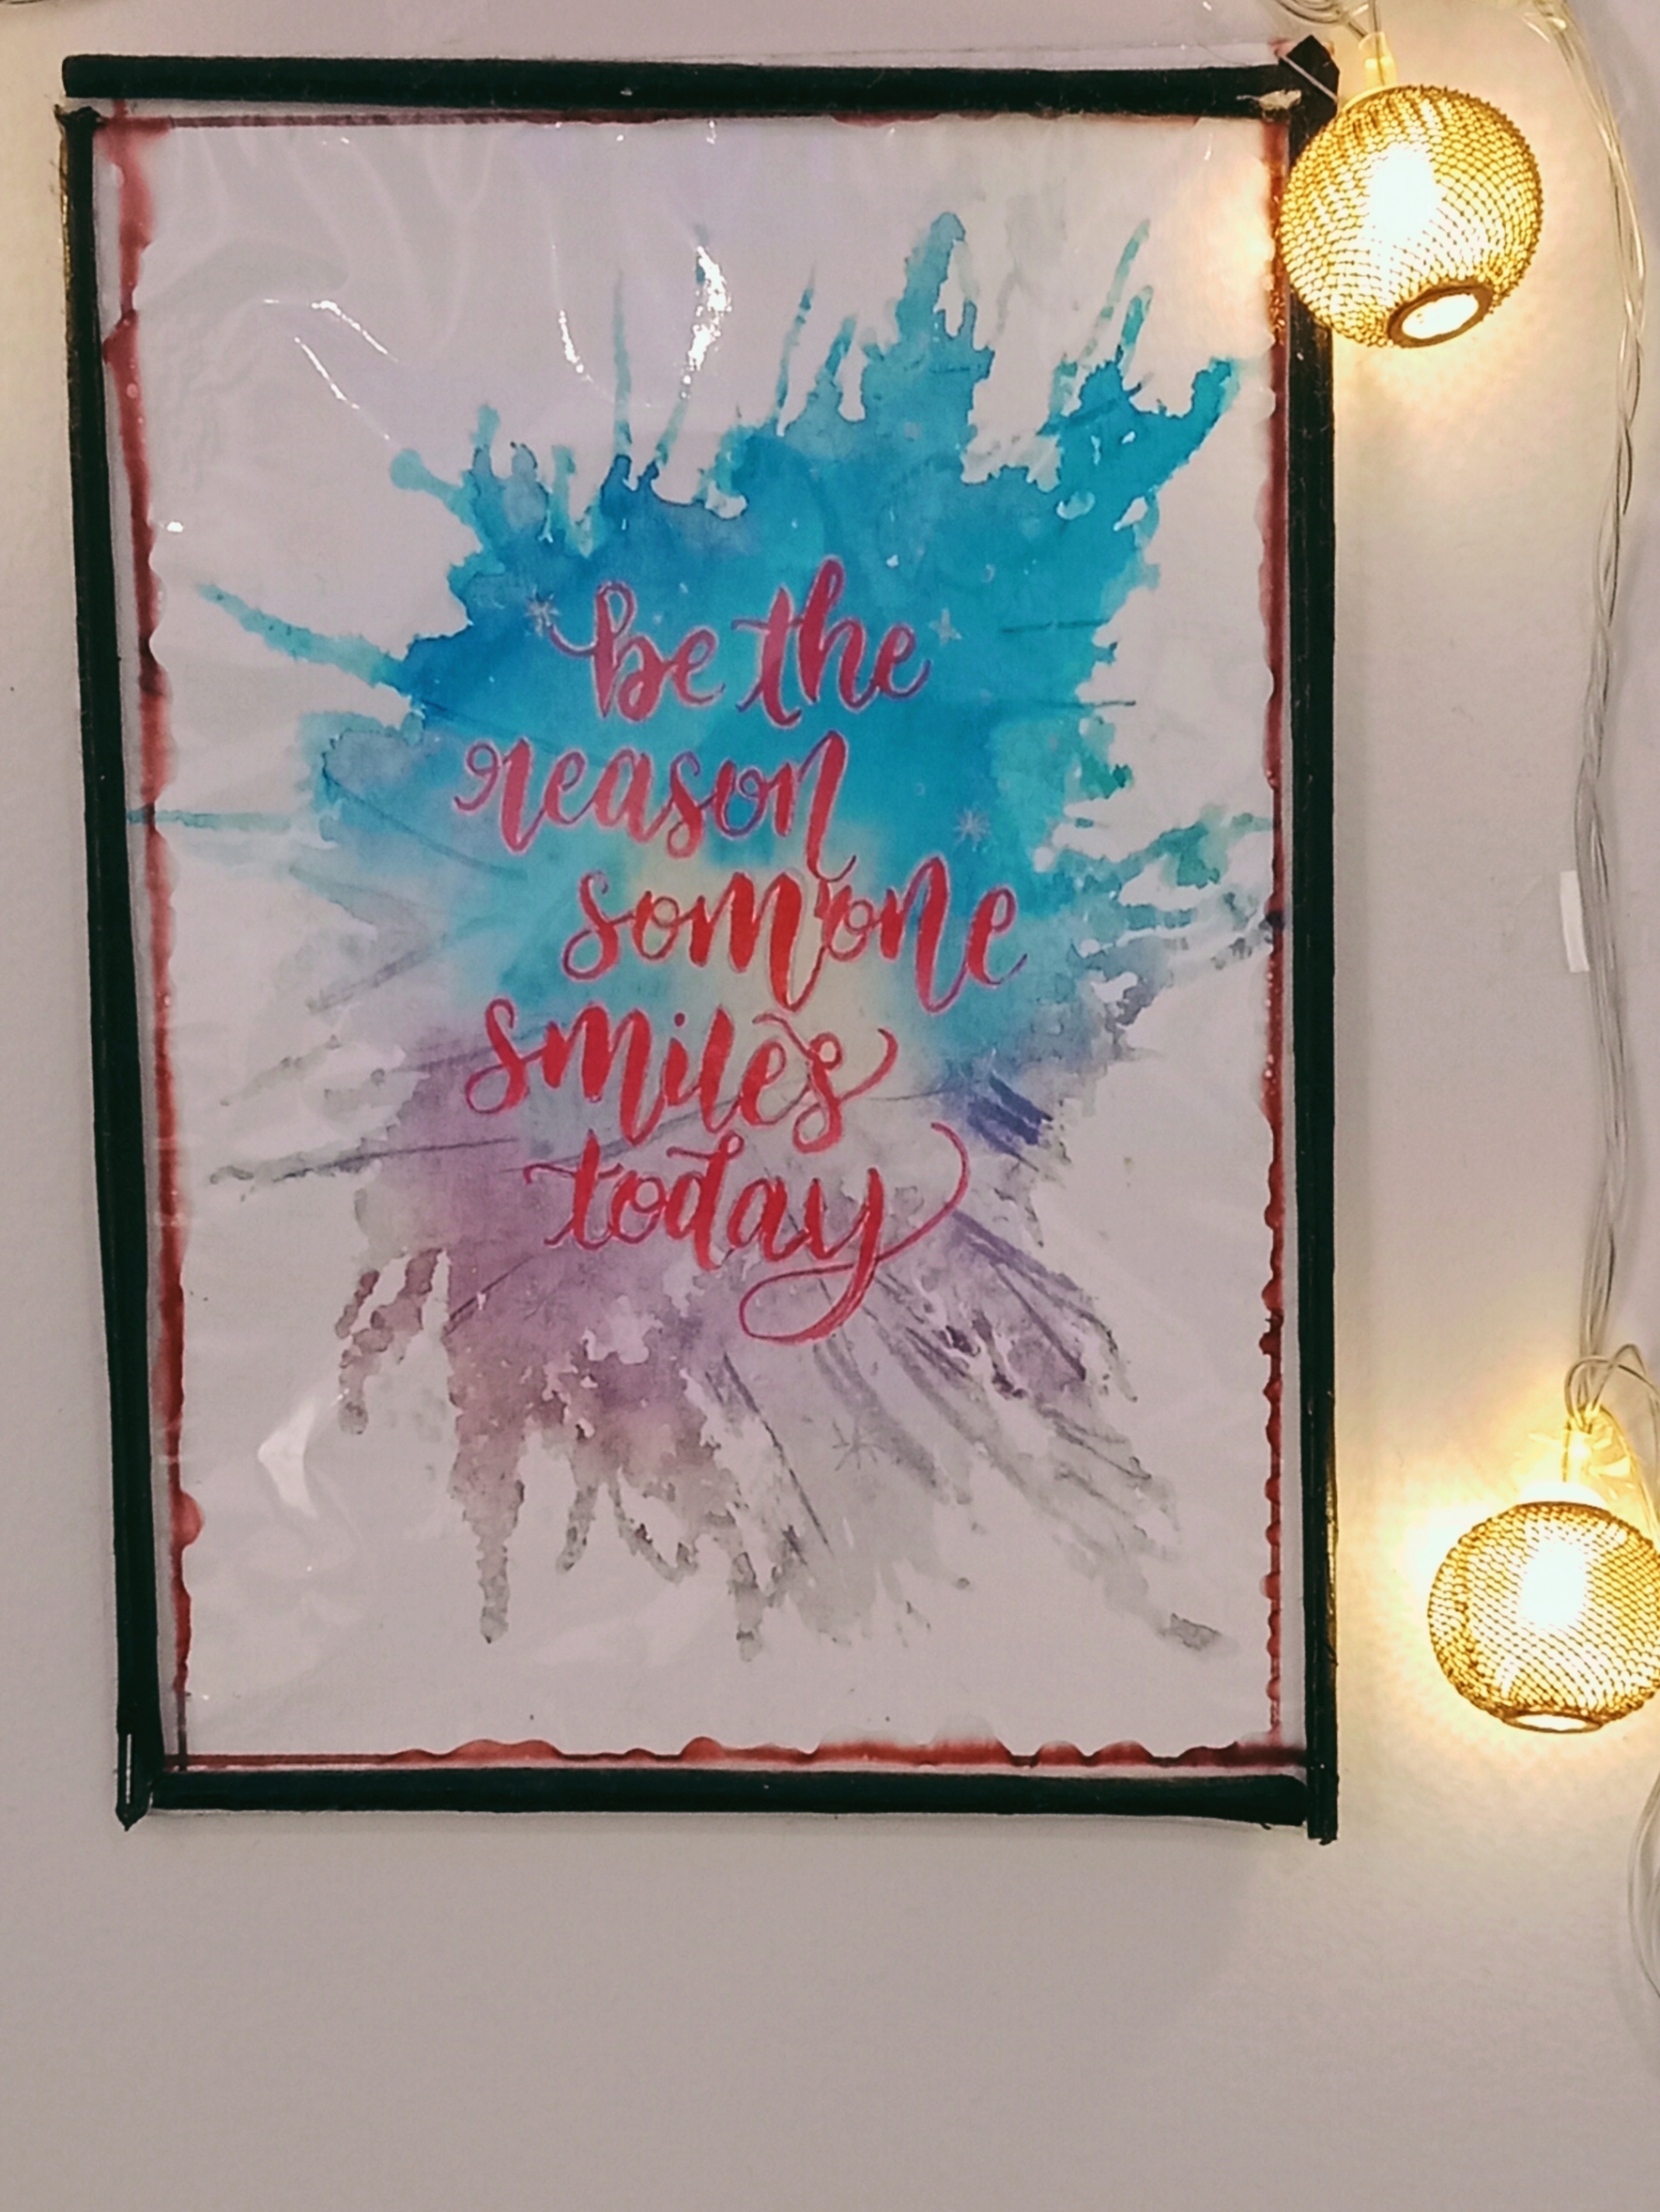 be the
reason
somone
smiles
today